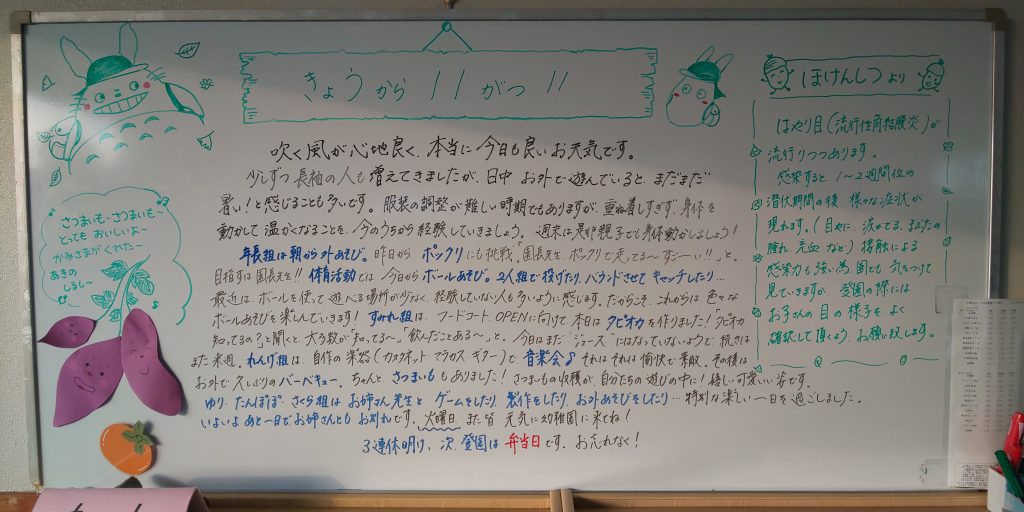 きょうから 11がつ!!
吹く風が心地良く、本当に今日も良いお天気です。
少しずつ長袖の人も増えてきましたが、日中お外で遊んでいると、まだまだ
暑い!と感じることも多いです。服装の調整が難しい時期でもありますが、重ね着しすぎず、身体を
動かして温かくなることを、今のうちから経験していきましょう。週末は是非親子でも身体動かしましょう!
年長組は朝から外あそび。昨日から、ポックリにも挑戦。「園長先生、ポックリで走ってる〜すご〜い!!」と、
目指すは園長先生!! 体育活動では、今日からボールあそび。2人組で投げたり、バウンドさせてキャッチしたり…
最近は、ボールを使って遊べる場所が少なく、経験していない人も多いように感じます。だからこそ、これからは色々な
ボールあそびを楽しんでいきます! すみれ組は、フードコートOPENに向けて本日はタピオカを作りました!「タピオカ
知ってるの?」と聞くと、大多数が「知ってる〜」「飲んだことある〜」と。今日はまだ“ジュース”にはなっていないようで、続きは
また来週。れんげ組は、自作の楽器(カスタネット マラカス ギター)で音楽会♪それはそれは愉快で素敵。その後は
お外で久しぶりのバーベキュー。ちゃんと、さつまいももありました!さつまいもの収穫が、自分たちの遊びの中に!嬉しい可愛い姿です。
ゆり、たんぽぽ、さくら組はお姉さん先生とゲームをしたり、製作をしたり、お外あそびをしたり…特別な楽しい一日を過ごしました。
いよいよあと一日でお姉さんともお別れです。火曜日、また皆元気に幼稚園に来てね!
3連休明け、次、登園は弁当日です。お忘れなく!
さつまいも・さつまいも〜
とってもおいしいよ〜
かみさまがくれた〜
あきの
しるし〜
ほけんしつより
はやり目(流行性角結膜炎)が
流行りつつあります。
感染すると1〜2週間位の
潜伏期間の後、様々な症状が
現れます。(目やに、涙がでる、まぶたの
腫れ、充血など)接触による
感染力も強い為、園でも気をつけて
見ていきますが、登園の際には
お子さんの目の様子をよく
確認して頂くよう、お願い致します。